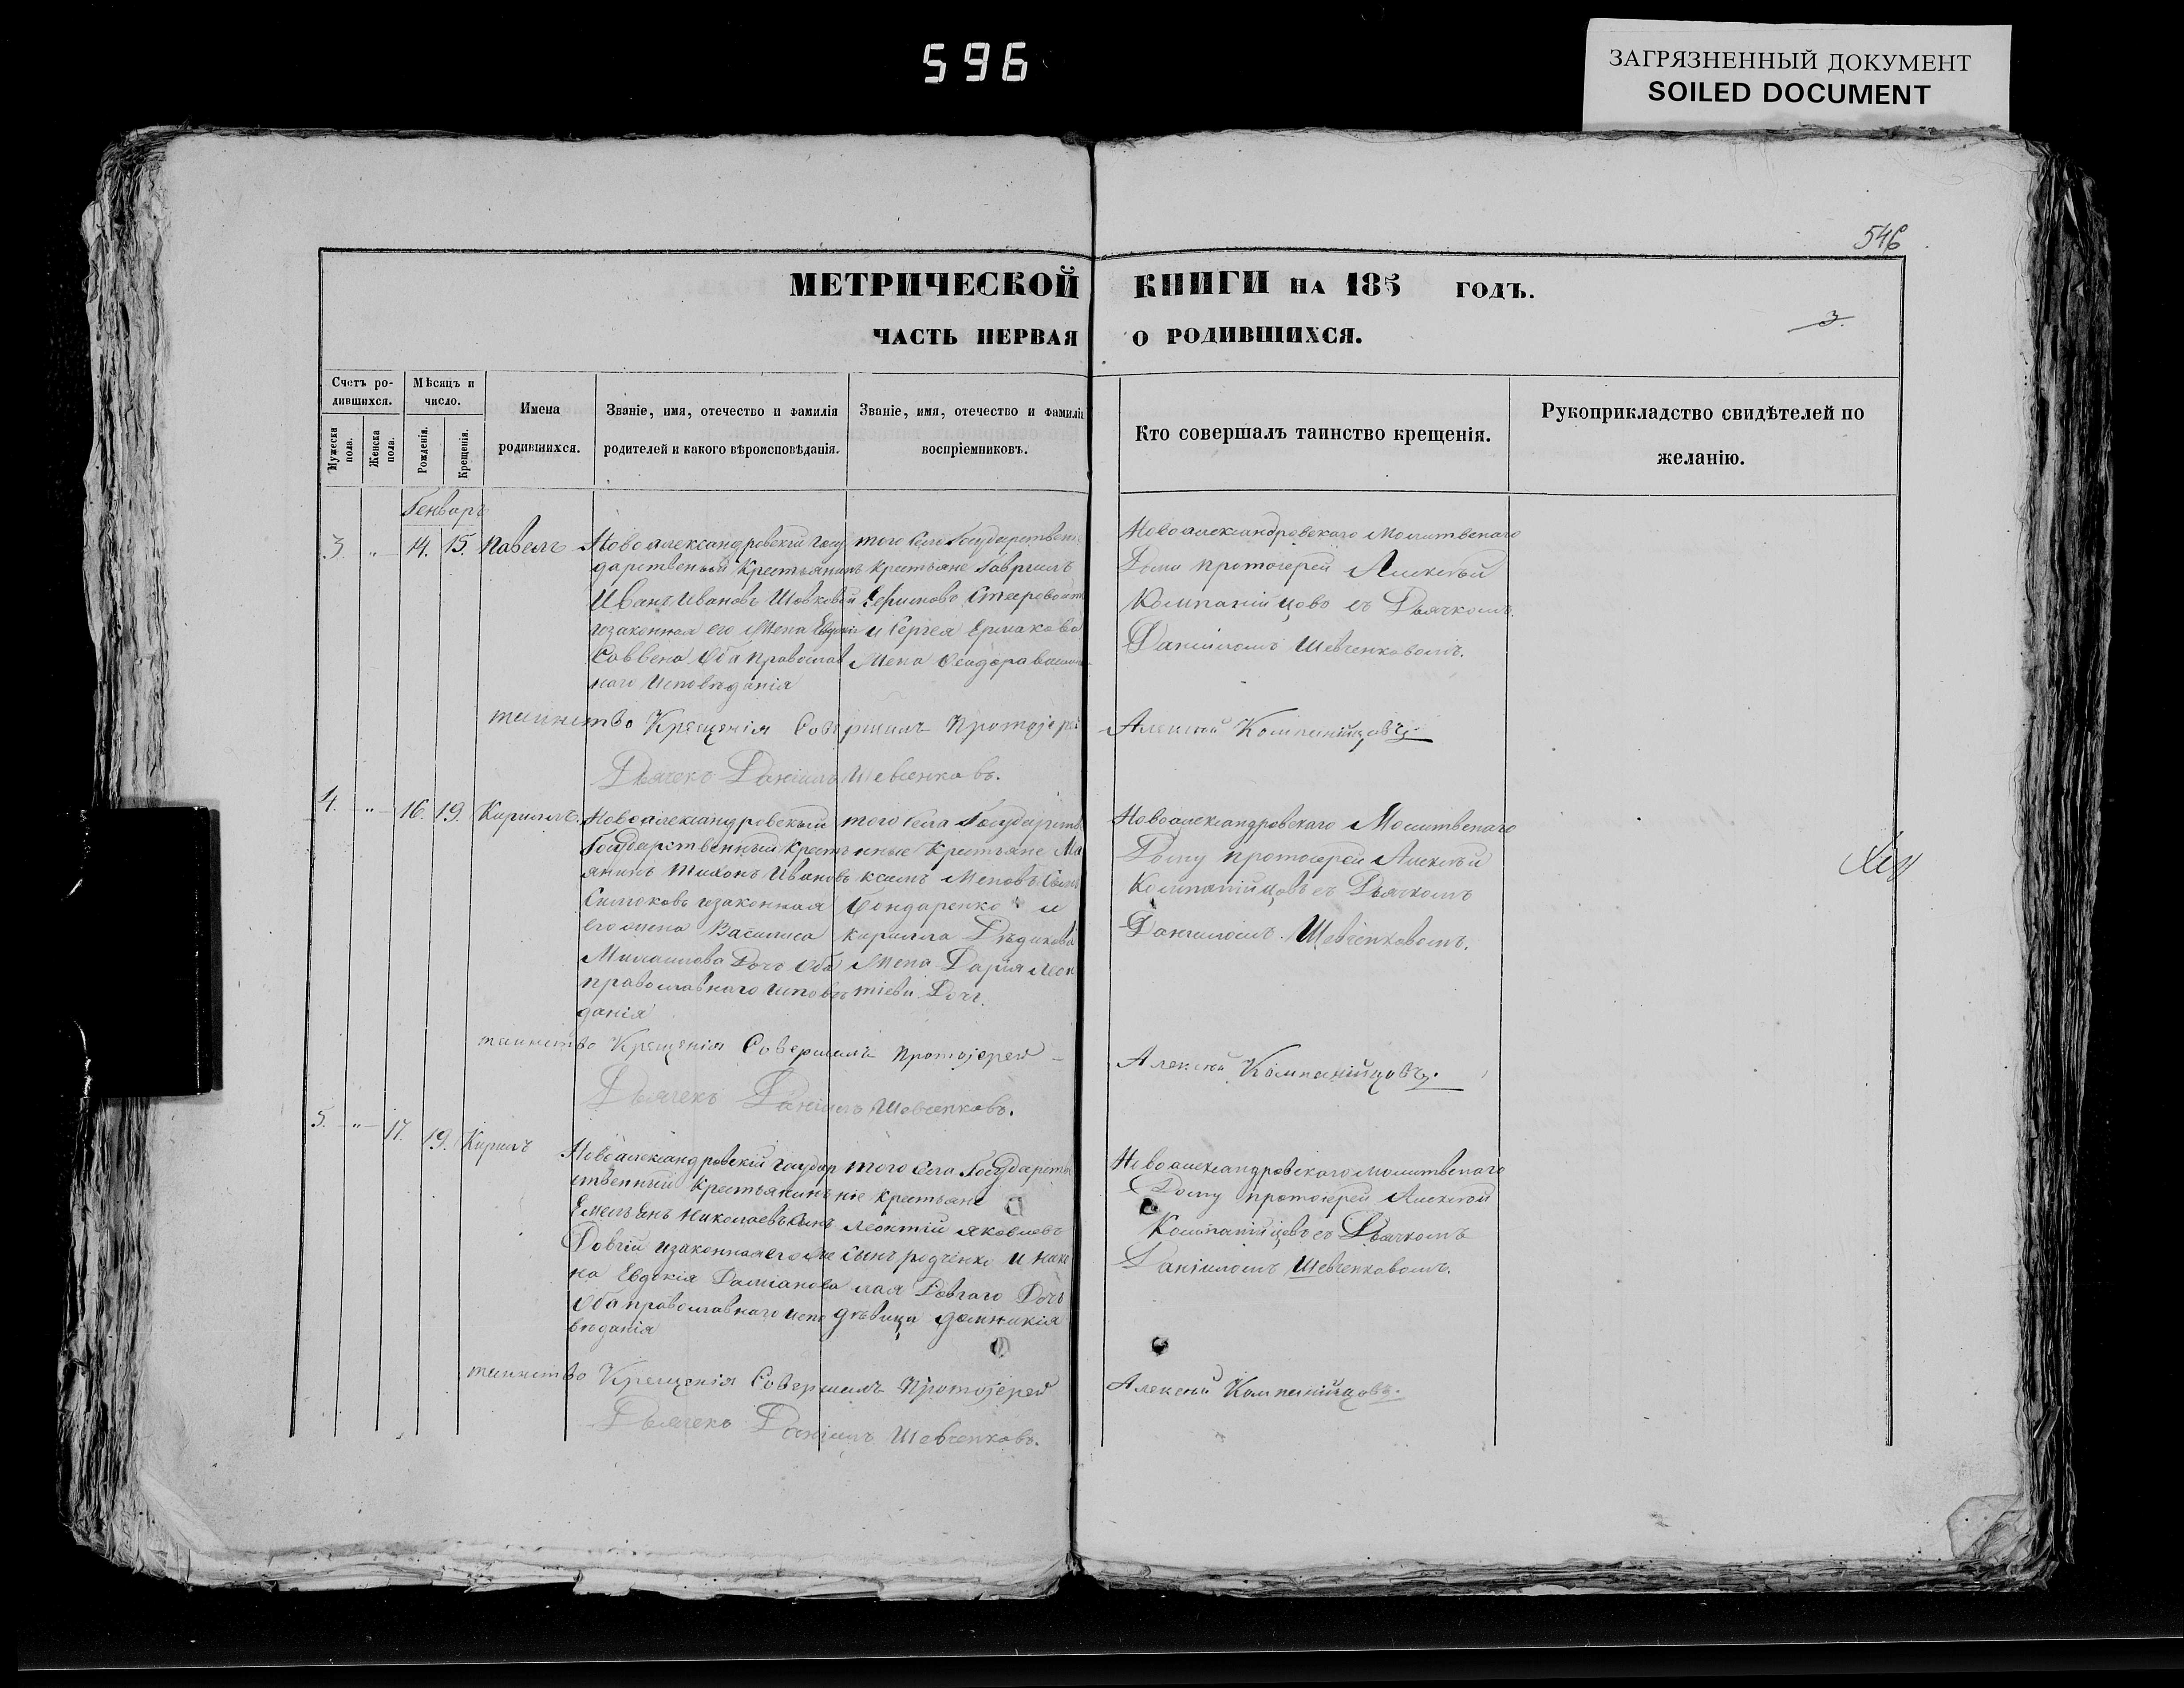 596
ЗАГРЯЗНЕННЫЙ ДОКУМЕНТ
SOILED DOCUMENT
546
МЕТРИЧЕСКОЙ КНИГИ НА 185 ГОДЪ.
3.
ЧАСТЬ ПЕРВАЯ О РОДИВШИХСЯ.
Счетъ ро-
дившихся.
Мужеска
пола.
Женска
пола.
Мѣсяцъ и
число.
Рожденія.
Крещенія.
Имена
родившихся.
Званіе, имя, отечество и фамилія
родителей и какого вѣроисповѣданія.
Званіе, имя, отечество и фамилія
воспріемниковъ.
Кто совершалъ таинство крещенія.
Рукоприкладство свидѣтелей по
желанію.
Генваръ
3. „ 14. 15. Павелъ
Новоалександровскій Госу
дарственный Крестьянинъ
Иванъ Ивановъ Шовковой
изаконная его Жена
Саввена Оба Православ
наго Исповѣданія
того Села Государствен
крестьяне Гавріилъ
Ефимовъ
и Сергея Ермакова
Жена Феодора
Новоалександровскаго Молитвенаго
Дома протоіерей Алексѣй
Компанійцовъ съ Дьячкомъ
Даніиломъ Шевченковомъ.
таинство Крещенія Совершилъ Протоіерей Алексѣй Компанійцовъ.
Дьячекъ Даніилъ Шевченковъ.
4. „ 16. 19. Кириллъ.
Новоалександровскый
Государственный Крестъ
янинъ Тихонъ Ивановъ
изаконная
его жена Василиса
Михаилова Дочь Оба
православнаго исповѣ
данія
того Села Государств
нные Крестьяне Ма
ксимъ
Бондаренко и
Кирилла Дѣдикова
Жена Дарія Леон
тіева Дочь.
Новоалександровскаго Молитвенаго
Дому протоіерей Алексѣй
Компанійцовъ съ Дьячкомъ
Даніиломъ Шевченковомъ.
таинство Крещенія Совершилъ Протоіерей Алексѣй Компанійцовъ.
Дьячекъ Даніилъ Шевченковъ.
5. „ 17. 19. Кирилъ
Новоалександровскій Государ
ственный Крестьянинъ
Емельянъ Николаевъ Сынъ
Довгій изаконная его Же
на Евдокія Даміанова
Оба православнаго испо
вѣданія
того Села Государств
ніе Крестьяне
Леонтій Яковлевъ
Сынъ Родченко и Нико
лая Довгаго Дочь
дѣвица Домникія
Новоалександровскаго Молитвенаго
Дому протоіерей Алексѣй
Компанійцовъ съ Дьячкомъ
Даніиломъ Шевченковомъ.
таинство Крещенія Совершилъ Протоіерей Алексѣй Компанійцовъ.
Дьячекъ Даніилъ Шевченковъ.